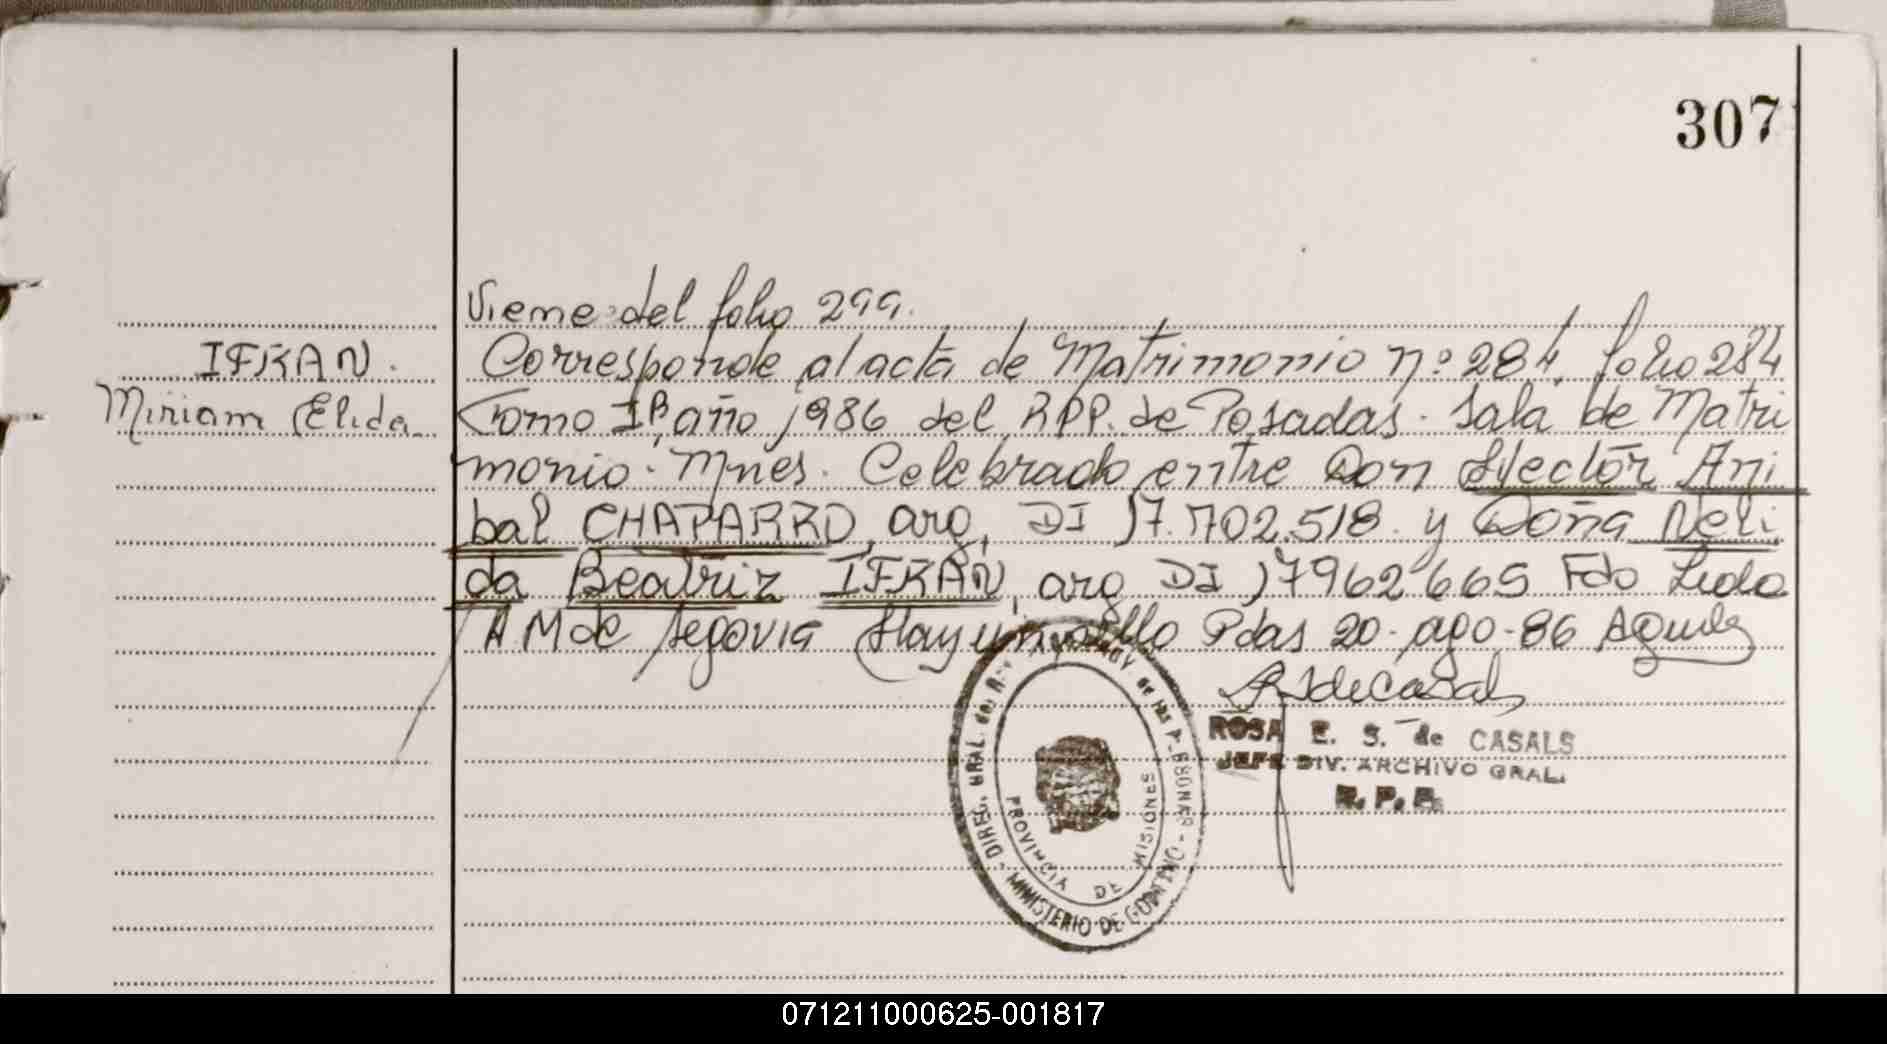 307
Viene del folio 299.
IFRAN.
Miriam Elida
Corresponde al acta de Matrimonio nº 284, folio 284
Tomo Iº, año 1986 del RPP. de Posadas. Sala de Matri
monio. Mnes. Celebrado entre Don Hector Ani
bal CHAPARRO, arg, DI 17.702.518 y Doña Neli
da Beatriz IFRAN, arg DI 17962665 Fdo Lida
A M de Segovia Hay un sello Pdas 20-ago-86
ROSA E. S. de CASALS
JEFE DIV. ARCHIVO GRAL.
R. P. P.
DIREC. GRAL. del
de las PERSONAS
PROVINCIA DE MISIONES
MINISTERIO DE GOBIERNO
071211000625-001817